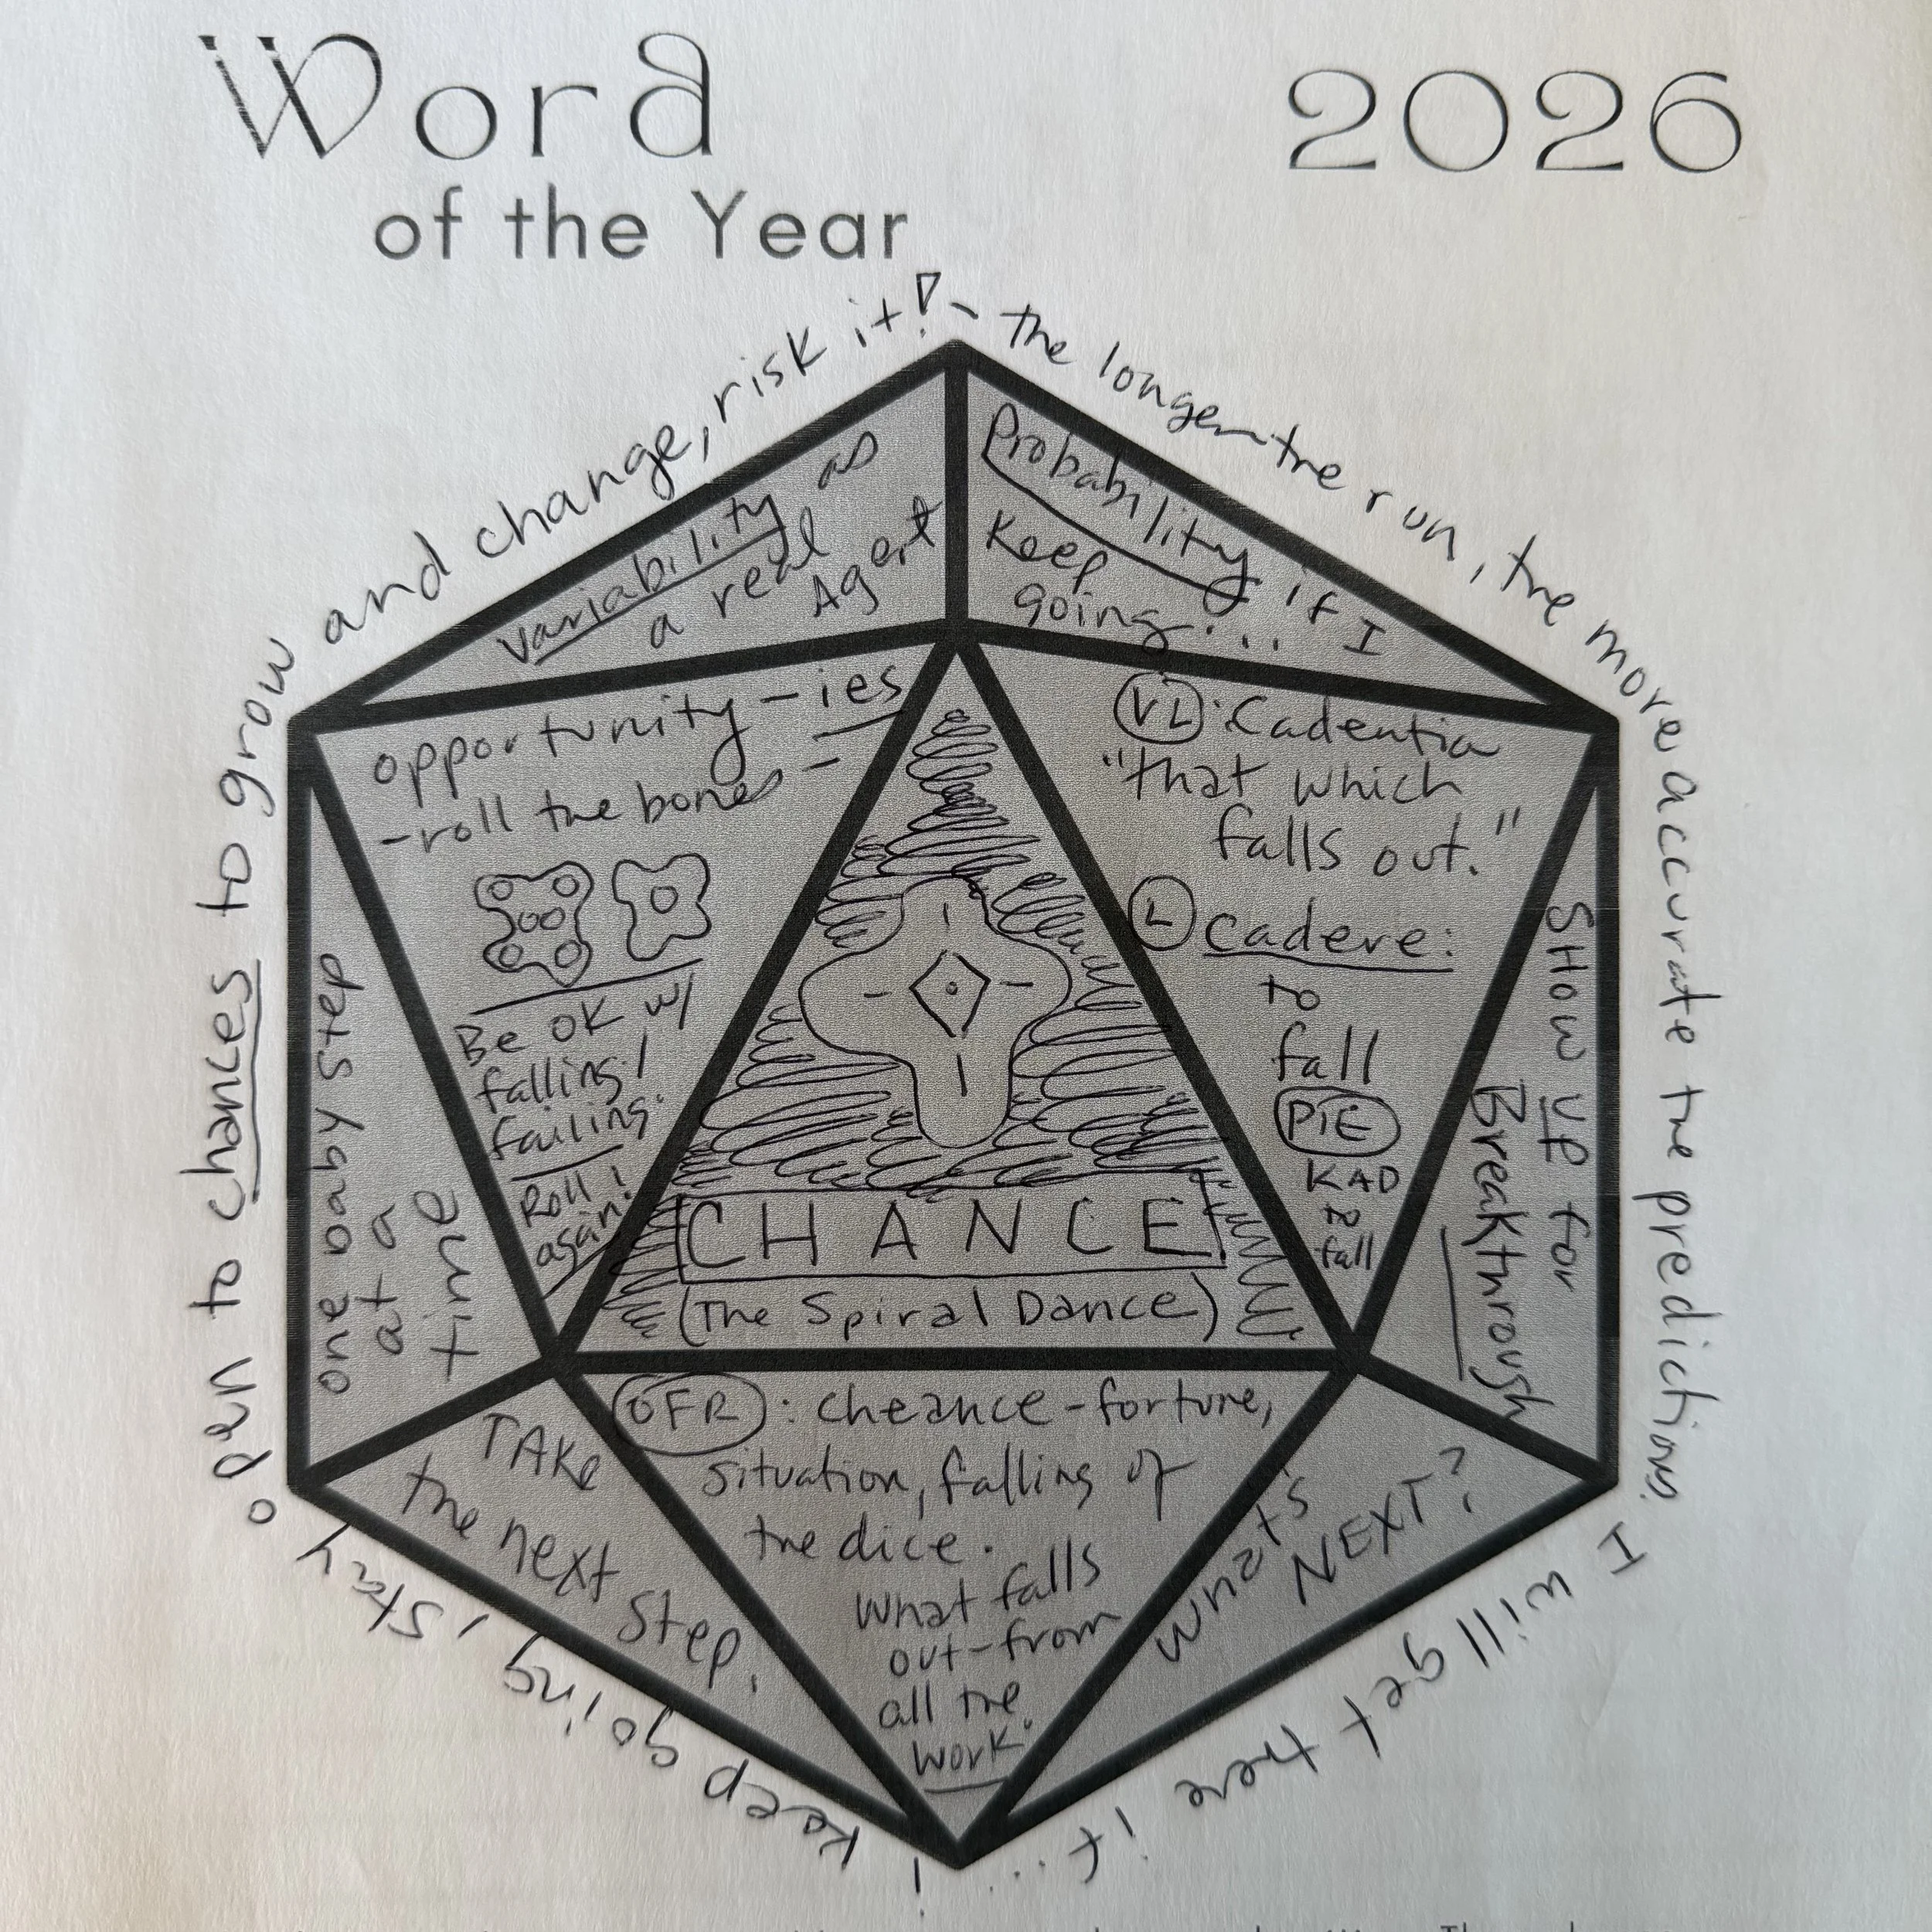 Word
of the Year
2026
- The longer the run, the more accurate the predictions.
I will get there if... I
keep going, stay
open to chances to grow
and change, risk it!
variability as
a real
Agent
Probability if I
Keep
going...
opportunity-ies
-roll the bones-
Be OK w/
falling!
failing.
Roll
again!
VL: Cadentia
"that which
falls out."
L Cadere:
to
fall
PIE
KAD
to
fall
CHANCE
(The Spiral Dance)
one baby step
at a
time
SHOW UP for
Breakthrough
TAKE
the next step.
OFR: cheance-fortune,
situation, falling of
the dice.
What falls
out-from
all the
work.
What's
NEXT?